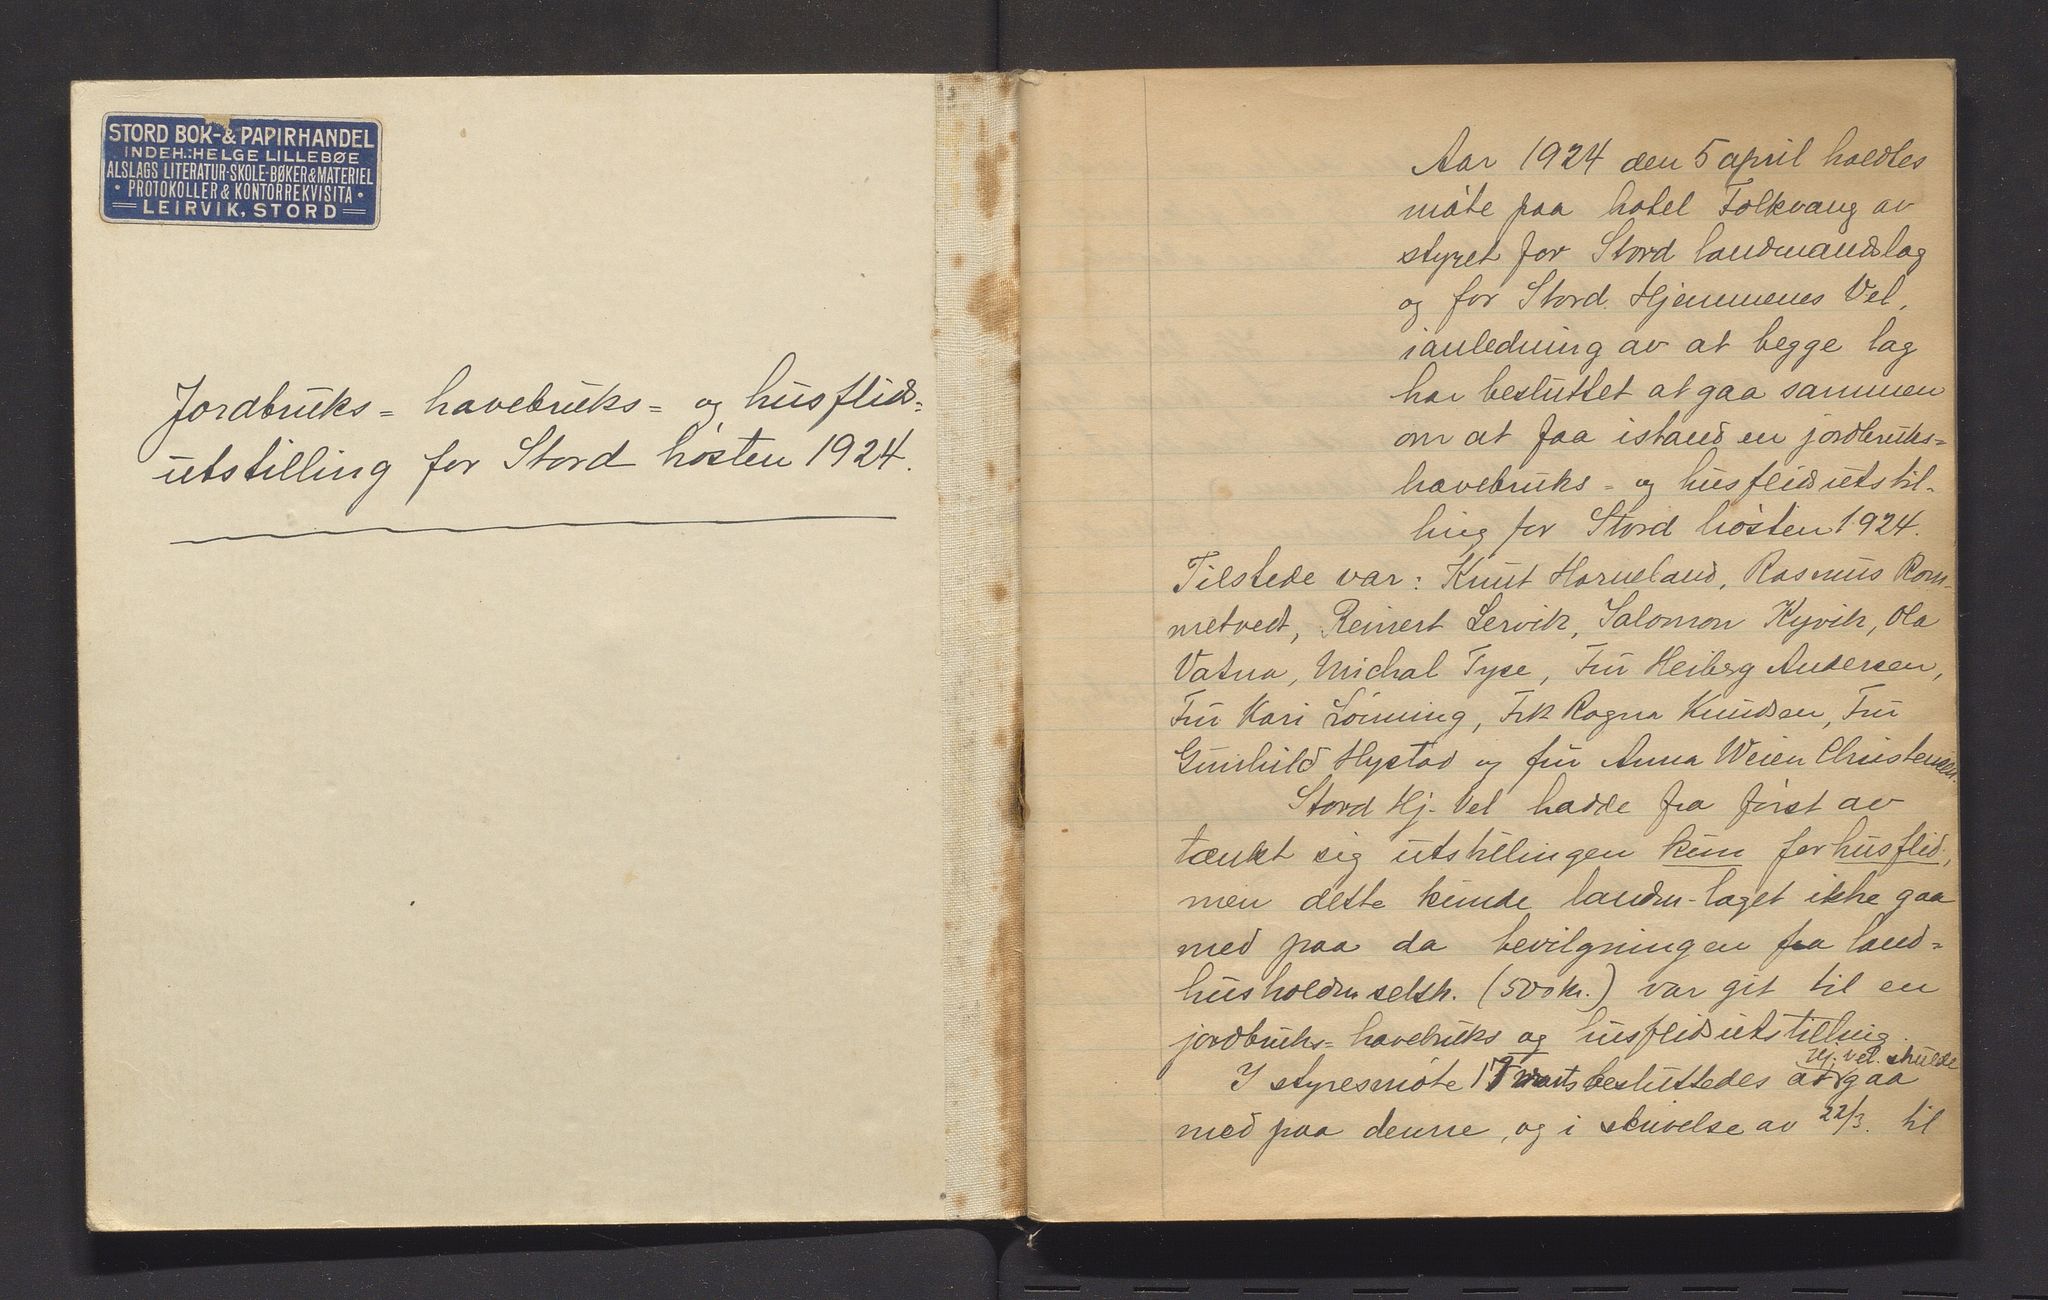 STORD BOK- & PAPIRHANDEL
INDEH.: HELGE LILLEBØE
ALSLAGS LITERATUR-SKOLE-BØKER & MATERIEL
• PROTOKOLLER & KONTORREKVISITA •
LEIRVIK, STORD
Jordbruks= havebruks= og husflids=
utstilling for Stord høsten 1924.
Aar 1924 den 5 april holdtes
møte paa hotel Folkvang av
styret for Stord landmandslag
og for Stord Hjemmenes Vel,
ianledning av at begge lag
har besluttet at gaa sammen
om at faa istand en jordbruks=
havebruks= og husflidsutstil-
ling for Stord høsten 1924.
Tilstede var: Knut Horneland, Rasmus Rom-
metvedt, Reinert Lervik, Salomon Kyvik, Ola
Vatna, Michal Tyse, Fru Heiberg Andersen,
Fru Kari Lønning, Frk Ragna Knudsen, Fru
Gunhild Hystad og fru Anna Weien Christensen.
Stord Hj. Vel hadde fra først av
tænkt sig utstillingen kun for husflid,
men dette kunde landm-laget ikke gaa
med paa da bevilgningen fra land=
husholdn selsk. (500 kr.) var git til en
jordbruks= havebruks og husflidsutstilling.
Hj. vel. skulde
I styresmøte 17 marts besluttedes at gaa
med paa denne, og i skrivelse av 22/3. til